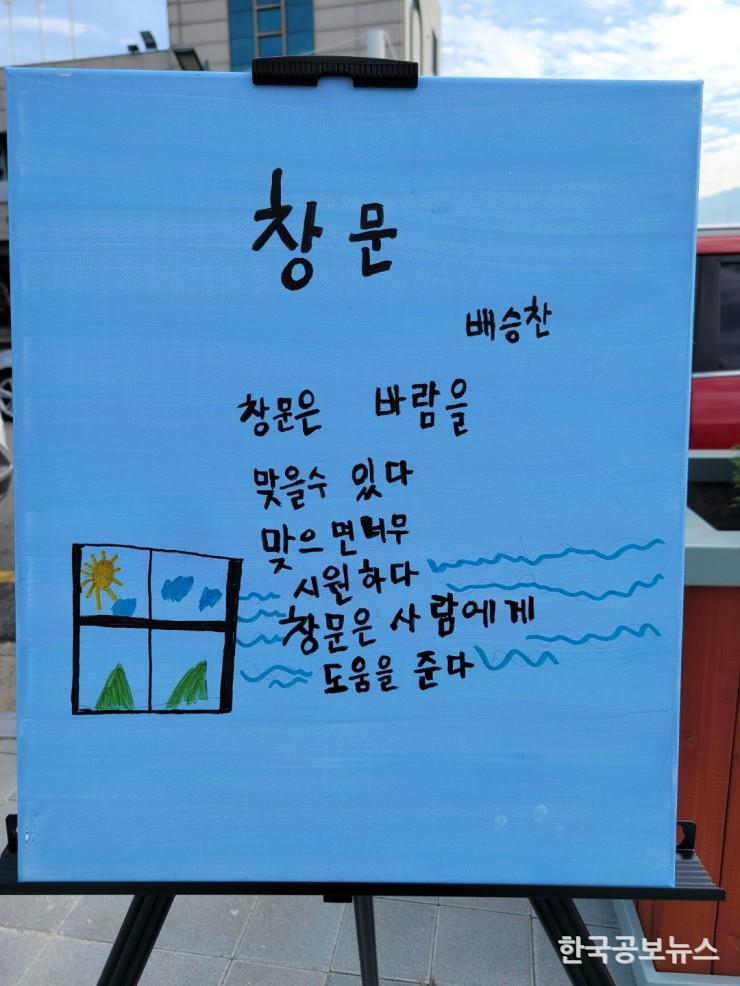 창문
배승찬
창문은 바람을
맞을수 있다
맞으면 너무
시원하다
창문은 사람에게
도움을 준다
한국공보뉴스